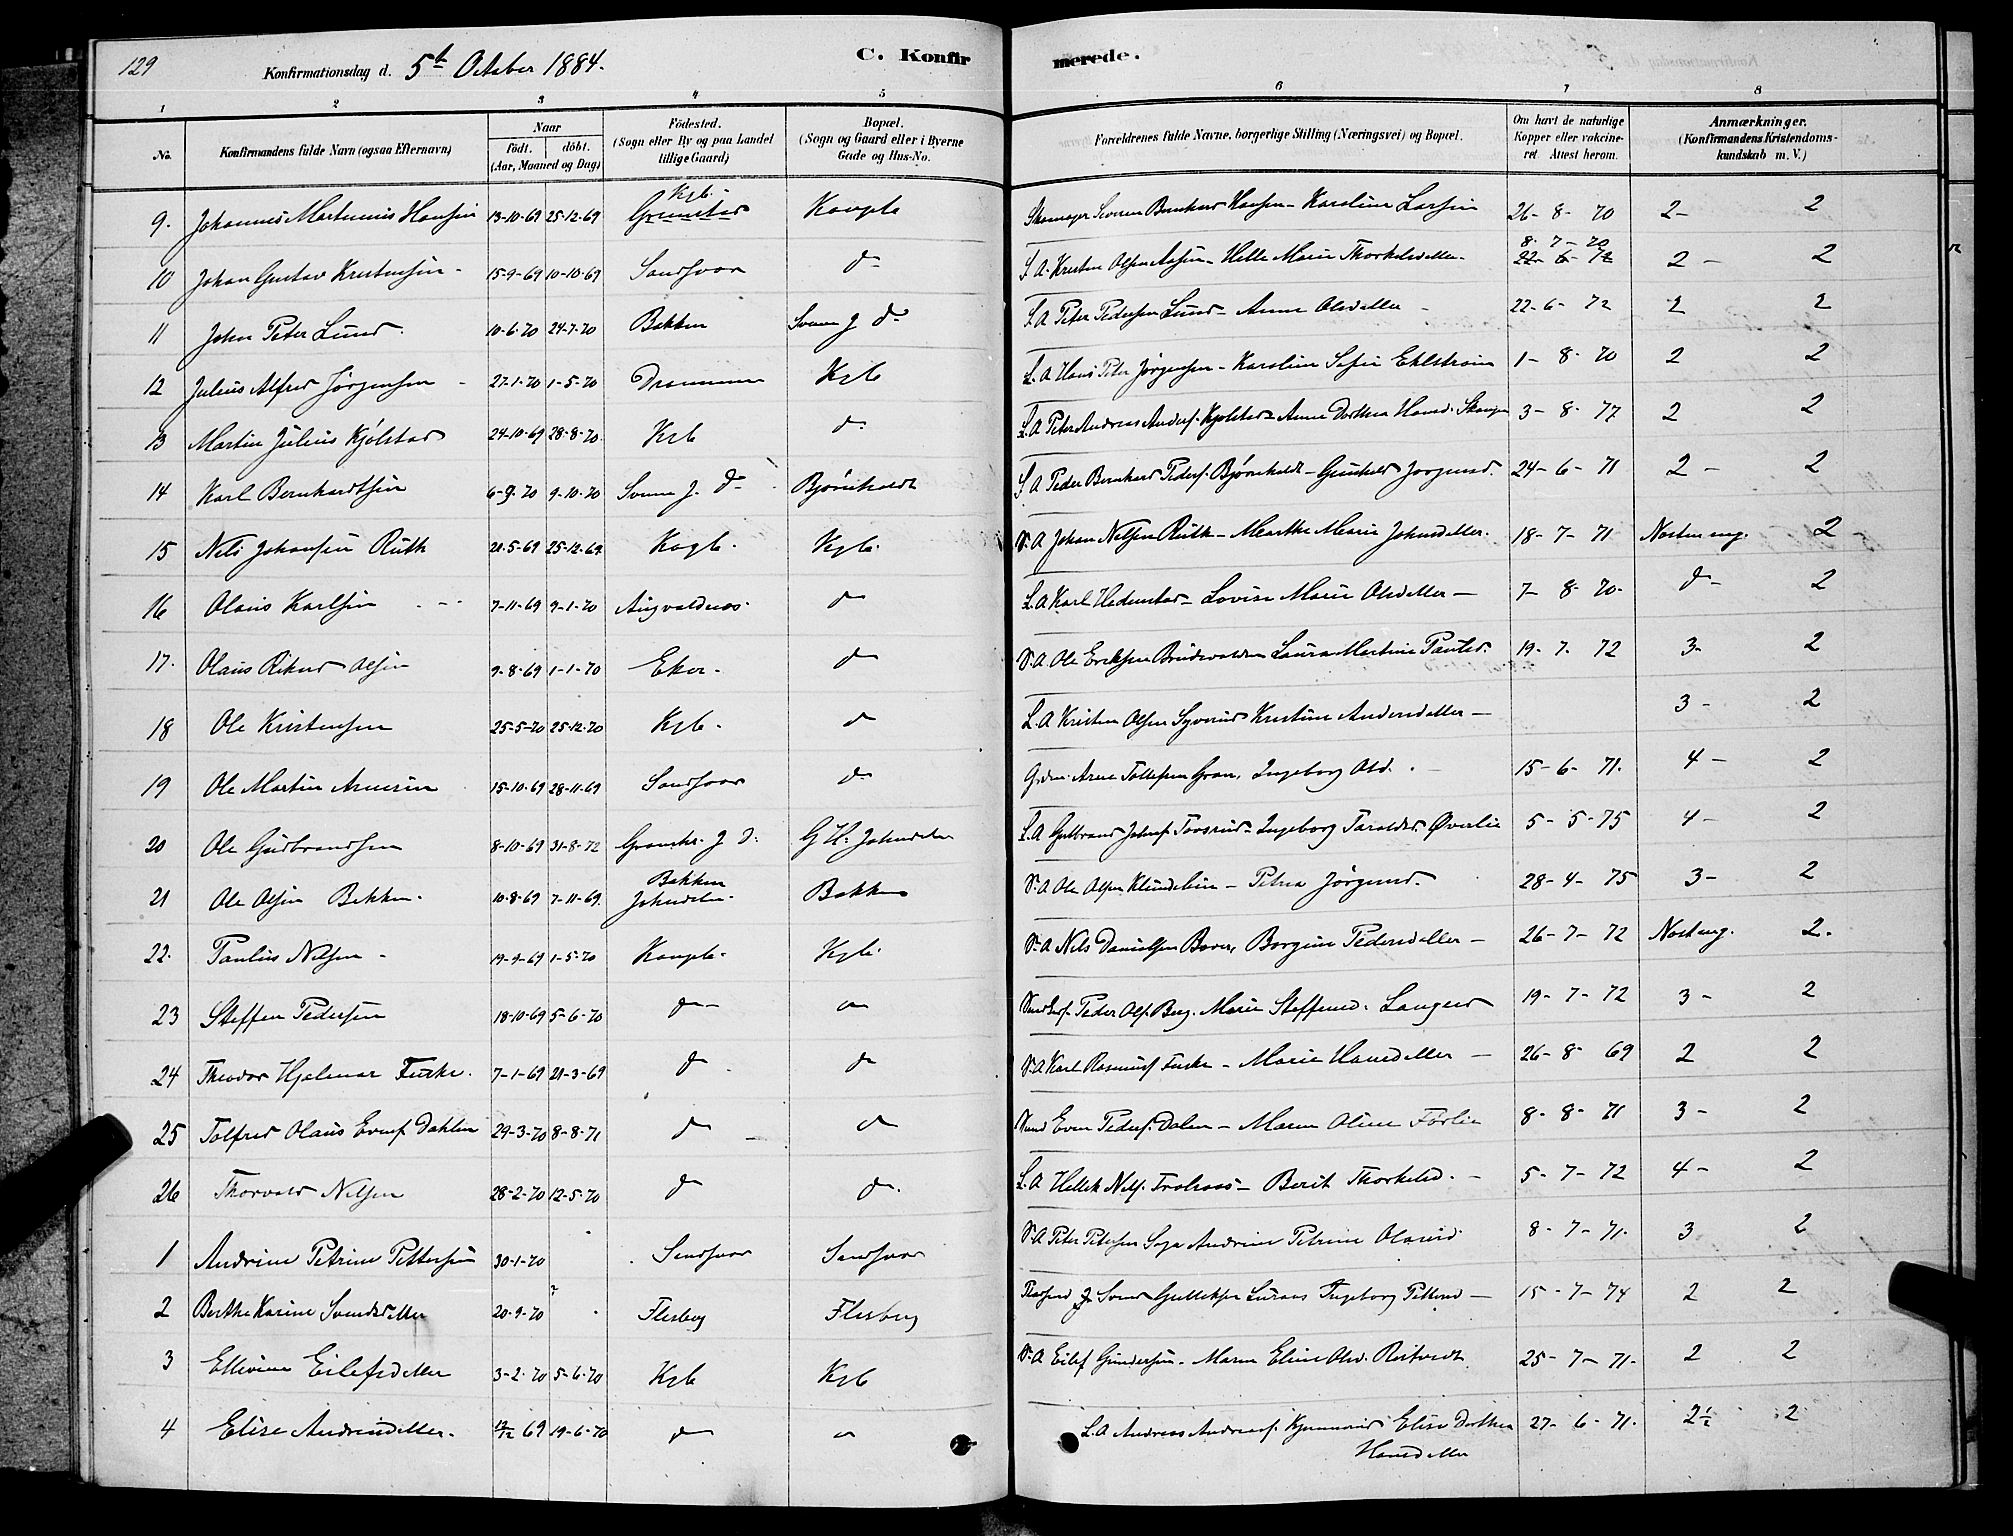 129
Konfirmationsdag d. 5t October 1884.
C. Konfirmerede.
1 2 3 4 5 6 7 8
No.
Konfirmandens fulde Navn (ogsaa Efternavn)
Naar
født. døbt.
(Aar, Maaned og Dag)
Fødested.
(Sogn eller By og paa Landet
tillige Gaard)
Bopæl.
(Sogn og Gaard eller i Byerne
Gade og Hus-No.
Forældrenes fulde Navne, borgerlige Stilling (Næringsvei) og Bopæl.
Om havt de naturlige
Kopper eller vakcine-
ret Attest herom.
Anmærkninger.
(Konfirmandens Kristendoms-
kundskab m. V.)
9. Johannes Martinius Hansen 13-10-69 25-12-69 Kgb. Grimstad Kongsb Skomager Severin Bernhard Hansen - Karoline Larsen 26-8-70 2- 2
10 Johan Gustav Kristensen - 15-9-69 10-10-69 Sandsvær do L.A. Kristen Olsen - Helle Marie Thorkelsdatter - 8-7-70 22-6-72 2- 2
11 Johan Peter Lund. 10-6-70 24-7-70 Bakken Svene J. do L.A Peter Pedersen Lund - Anne Olsdatter - 22-6-72 2 2
12 Julius Alfred Jørgensen - 27-1-70 1-5-70 Drammen Kgb L.A Hans Peter Jørgensen - Karoline Sofie Ehlstrøm 1-8-70 2 2
13 Martin Julius Kjølstad 24-10-69 28-8-70. Kgb do L.A Peter Andreas Anders. Kjølstad - Anne Dorthea Hansd. 3-8-77 2 2
14 Karl Bernhardsen 6-9-70 9-10-70 Svene J. do Bjørnholdt L A Peder Bernhard Peders. Bjørnholdt - Gunhild Jørgensd. 24-6-71 2- 2
15 Nels Johansen Ruth 21-5-69 25-12-69 Kogb. Kgb. V.A Johan Nelsen Ruth - Marthe Marie Johnsdatter. 18-7-71 Nosten ug. 2
16 Olaus Karlsen 7-11-69 9-1-70 do L.A Karl Hedenstad - Lovise Marie Olsdatter - 7-8-70. do 2
17. Olaus Rikard Olsen 9-8-69 1-1-70 Eker. do V.A Ole Eriksen Laura Martine 19-7-72 3- 2
18 Ole Kristensen 25-5-70 25-12-70 Kgb. do L.A Kristen Olsen Kristine Andersdatter - 3- 2
19 Ole Martin Arnesen 15-10-69 28-11-69 Sandsvær do Arne Tollefsen Gran, Ingeborg Olsd. 15-6-71. 4- 2
20 Ole Gudbrandsen 8-10-69 31-8-72 J. do. G H. L.A Gulbrand Johns. Ingeborg Øverlie 5-5-75 4- 2
21 Ole Olsen Bakken. 10-8-69 7-11-69. Bakken Bakken V.A Ole Olsen - Petra Jørgensd. 28-4-75 3- 2
22. Paulus Nelsen - 19-9-69 1-5-70 Kongsb. Kgb. V.A Nels Danielsen Borgine Pedersdatter - 26-7-72 Nosten ug. 2.
23 Steffen Pedersen 18-10-69 5-6-70 do do Peder Ols. Berg. Marie Steffensd. 19-7-72 3- 2
24 Theodor Hjalmar Fuske. 7-1-69 21-3-69 do do V.A Karl Rasmus. Fuske - Marie Hansdatter - 26-8-69 2 2
25 Tolfred Olaus Evens. Dahlen 29-3-70 8-8-71 do do Even Peders. Dalen - Maren Oline Førlie 8-8-71 3- 2
26 Thorvald Nelsen 28-2-70 12-5-70 do do. L.A Hellek Nels. - Berit Thorkelsd. - 5-7-72 4- 2
1 Andrine Petrine Pettersen 30-1-70 Sandsvær Sandsvær V.A Peter Petersen Andrine Petrine Olausd. 8-7-71. 3 2
2 Berthe Karine Svendsdatter 20-9-70 ? Flesberg Flesberg Svend Gulleksen Ingeborg - 15-7-74 2 2
3 Eilefsdatter 3-2-70 5-6-70 Kgb Kgb V.A Eilef Gundersen. Maren Eline Olsd. 25-7-71- 2 2
4 Elise Andreasdatter. 12/12 69 19-6-70 do do L.A Andreas Andreas. Elise Dorthea 27-6-71. 2½ 2
Hansdatter